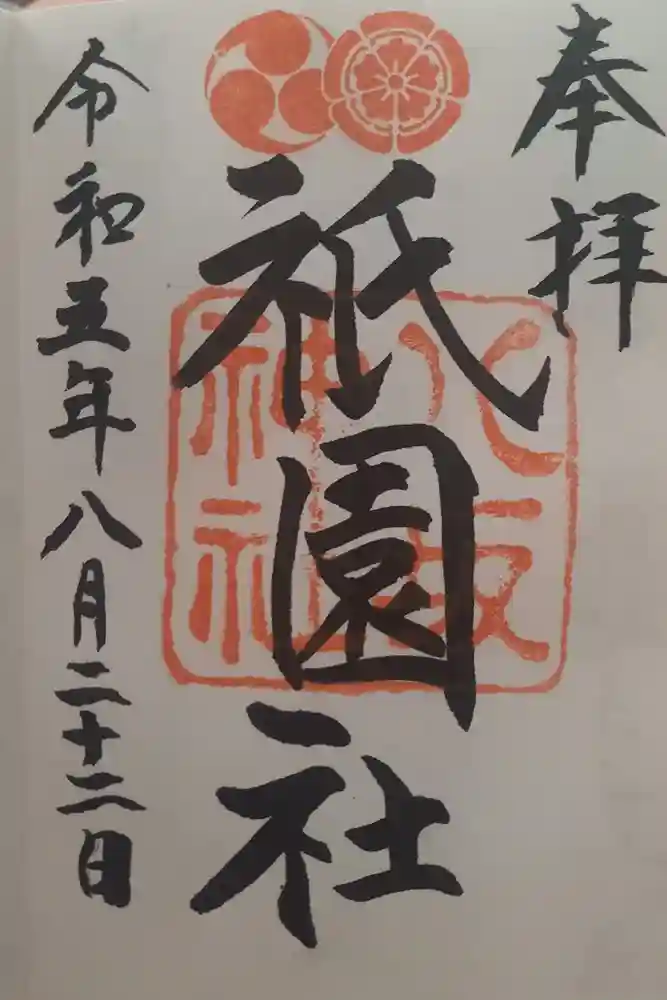 奉拝
祇園社
八坂
神社
令和五年八月二十二日